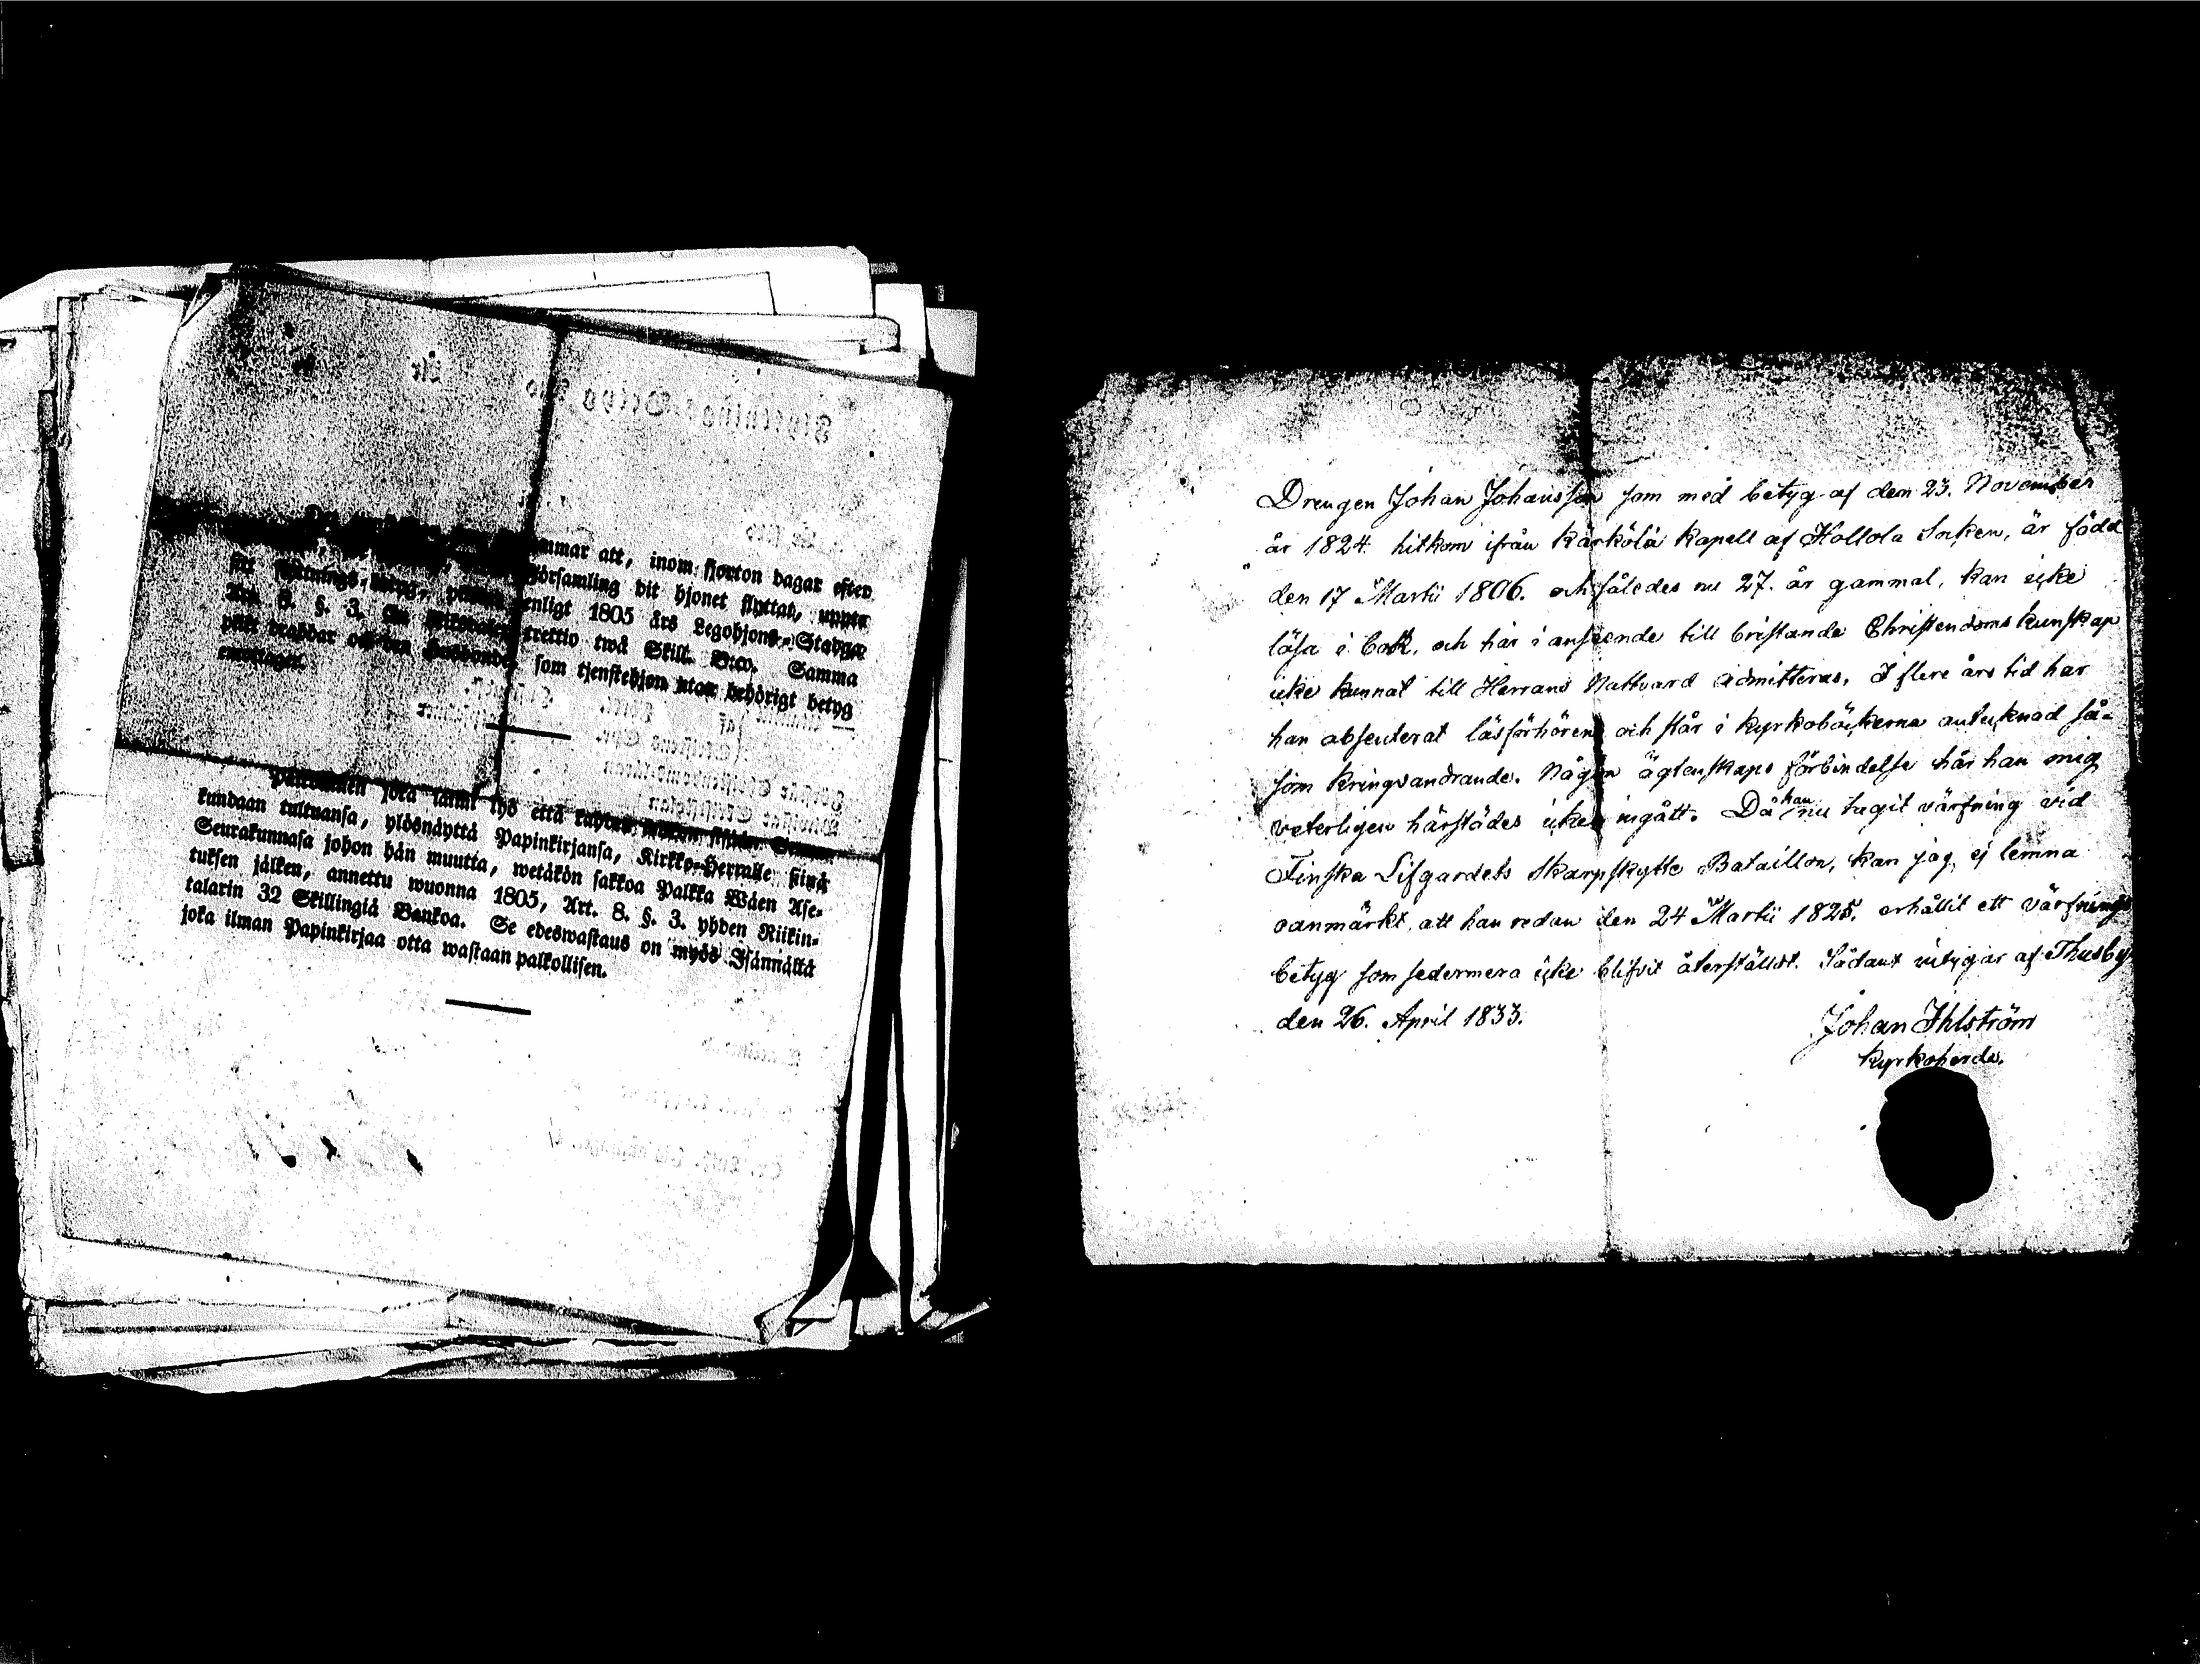 mmar att, inom fjorton dagar efter
församling dit hjonet flyttat, uppte
enligt 1805 års Legohjons-Stadga
Art. 8. §. 3. trettio twå Skill. B:co. Samma
som tjenstehjon utan behörigt betyg
emottaget.
joka laimi lyö että
kundaan tultuansa, ylösnäyttä Papinkirjansa, Kirkko-Herralle siinä
Seurakunnasa johon hän muutta, wetäkön sakkoa Palkka Wäen Ase-
tuksen jälken, annettu wuonna 1805, Art. 8. §. 3. yhden Riikin-
talarin 32 Skillingiä Bankoa. Se edeswastaus on myös Isännällä
joka ilman Papinkirjaa otta wastaan palkollisen.
Drengen Johan Johansson som med betyg af den 23. November
år 1824 hitkom ifrån Kärkölä kapell af Hollola Socken, är född
den 17 Martii 1806. och således nu 27. år gammal, kan icke
läsa i bok, och har i anseende till bristande Christendoms kunskap
icke kunnat till Herrans Nattvard admitteras. I flere års tid har
han absenterat läsförhören och står i kyrkoböckerna antecknad så-
som kringvandrande. Någon ägtenskaps förbindelse har han mig
veterligen härstädes icke ingått. Då han nu tagit värfning vid
Finska Lifgardets Skarpskytte Bataillon, kan jag ej lemna
oanmärkt, att han redan den 24 Martii 1825. erhållit ett värfnings
betyg som sedermera icke blifvit återställdt. Sådant intygar af Thusby
den 26. April 1833.
Johan Ihlström
Kyrkoherde.